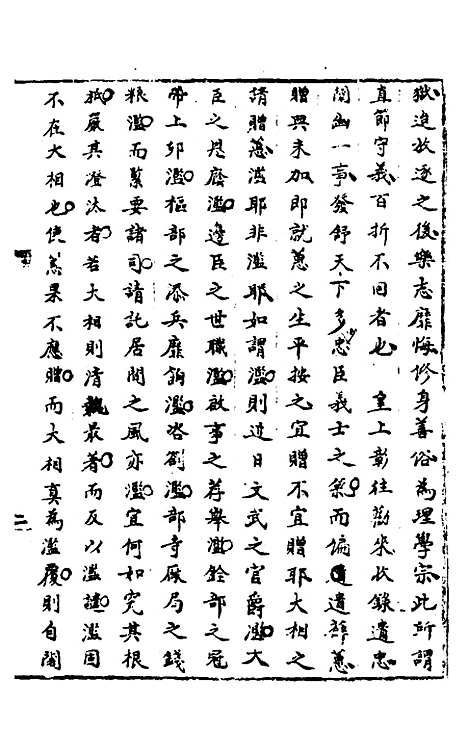 獄迨放逐之後樂志靡悔修身善俗為理學宗此所謂
直節守義百折不回者也 皇上彰往勸來收錄遺忠
闡幽一事發舒天下多少忠臣義士之氣而偏遺薛蕙
贈典未加即就蕙之生平按之宜贈不宜贈耶大相之
請贈蕙濫耶非濫耶如謂濫則近日文武之官爵濫大
臣之恩廕濫邊臣之世職濫啟事之荐舉濫銓部之冠
帶上卯濫樞部之添兵靡餉濫咨劄濫部寺厰局之錢
粮濫而蔡要諸司請託居間之風亦濫宜何如究其根
抵嚴其澄汰者若大相則清執最著而反以濫譴濫固
不在大相也使蕙果不應贈而大相真為濫覆則自閣
二